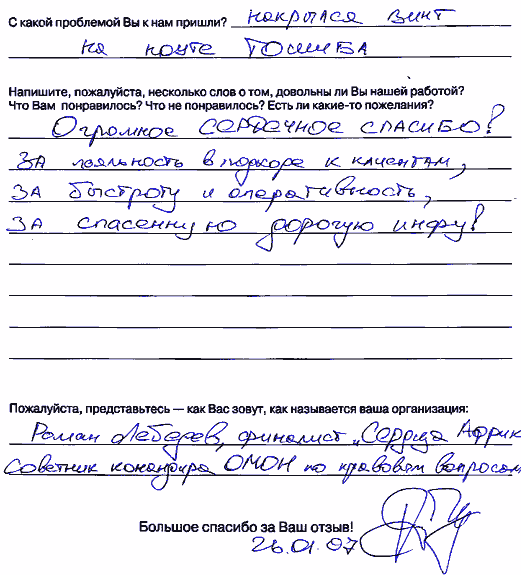 С какой проблемой Вы к нам пришли? накрылся винт
на ноуте ТОШИБА
Напишите, пожалуйста, несколько слов о том, довольны ли Вы нашей работой?
Что Вам понравилось? Что не понравилось? Есть ли какие-то пожелания?
Огромное СЕРДЕЧНОЕ СПАСИБО!
ЗА лояльность в подходе к клиентам,
ЗА быстроту и оперативность,
ЗА спасенную дорогую инфу!
Пожалуйста, представьтесь — как Вас зовут, как называется ваша организация:
Роман Лебедев, финалист „Сердца Африк
Советник командира ОМОН по правовым вопросам
Большое спасибо за Ваш отзыв!
26.01.07